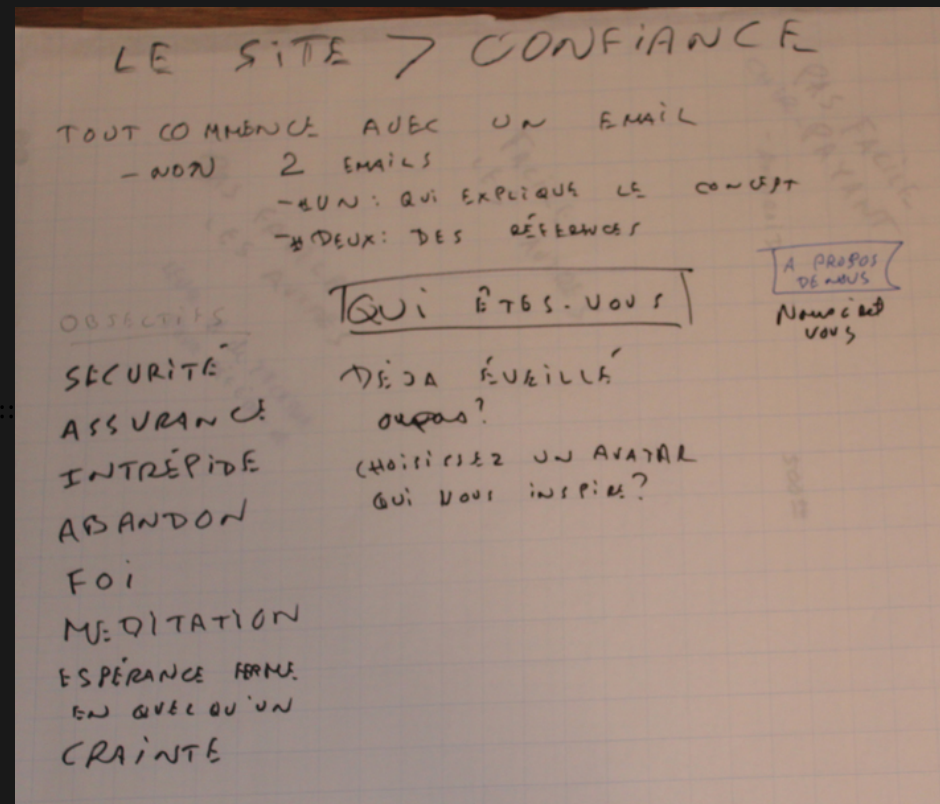 LE SITE > CONFIANCE
TOUT COMMENCE AVEC UN EMAIL
- NON 2 EMAILS
- UN : QUI EXPLIQUE LE CONCEPT
- DEUX : DES RÉFÉRENCES
A PROPOS
DE NOUS
QUI ÊTES-VOUS
OBJECTIFS
SÉCURITÉ
ASSURANCE
INTRÉPIDE
ABANDON
FOI
MÉDITATION
ESPÉRANCE FERME
EN QUELQU'UN
CRAINTE
DÉJA ÉVEILLÉ
ou pas ?
CHOISISSEZ UN AVATAR
QUI VOUS INSPIRE ?
vous